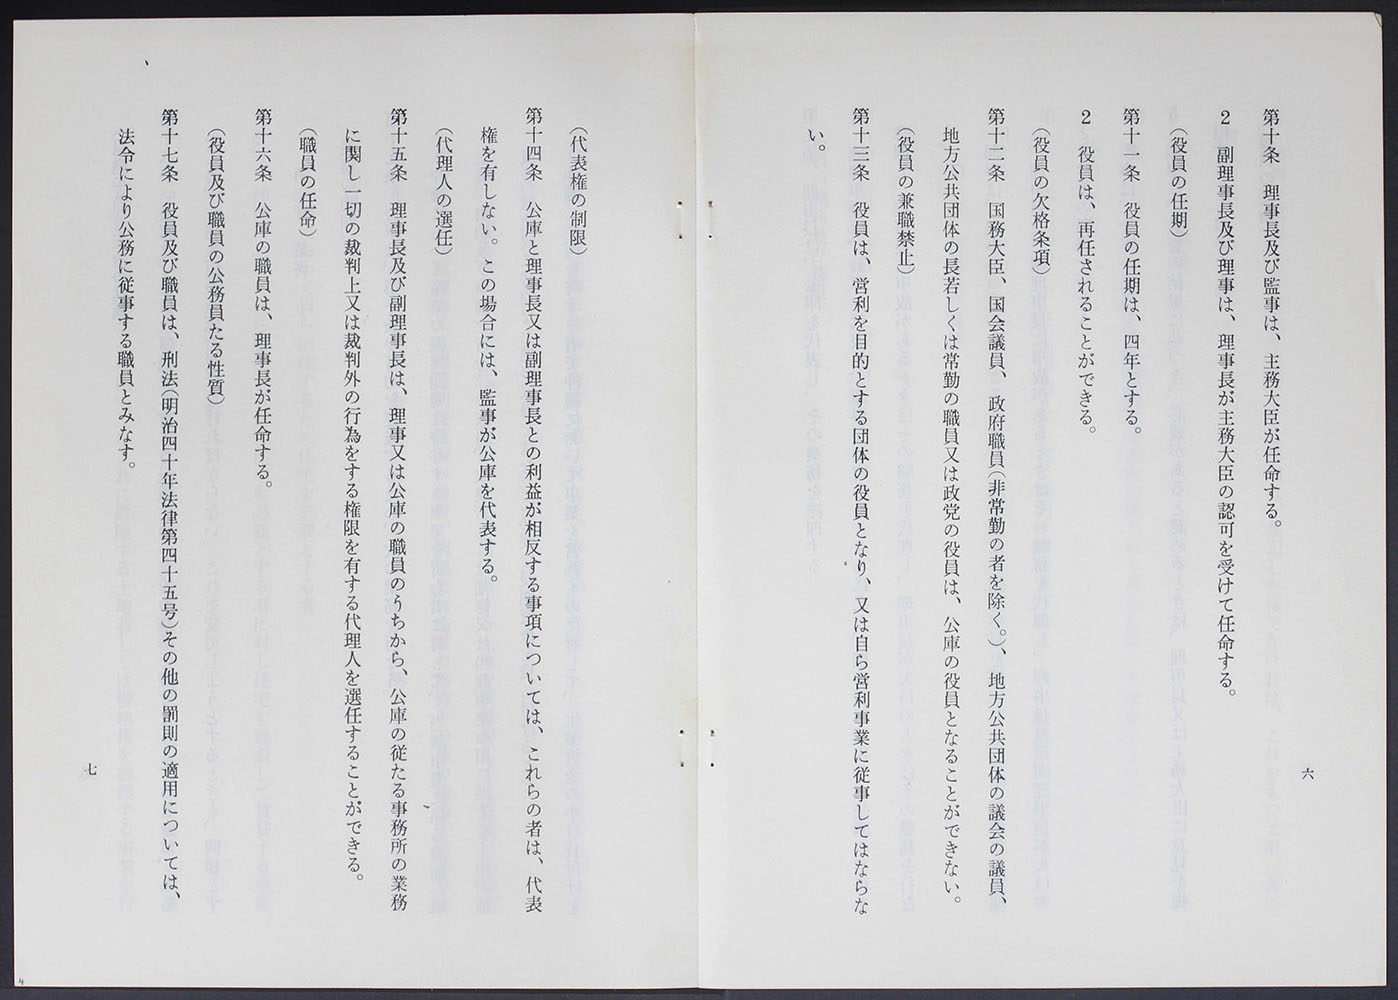 第十条　理事長及び監事は、主務大臣が任命する。
２　副理事長及び理事は、理事長が主務大臣の認可を受けて任命する。
（役員の任期）
第十一条　役員の任期は、四年とする。
２　役員は、再任されることができる。
（役員の欠格条項）
第十二条　国務大臣、国会議員、政府職員（非常勤の者を除く。）、地方公共団体の議会の議員、
地方公共団体の長若しくは常勤の職員又は政党の役員は、公庫の役員となることができない。
（役員の兼職禁止）
第十三条　役員は、営利を目的とする団体の役員となり、又は自ら営利事業に従事してはならな
い。
六
（代表権の制限）
第十四条　公庫と理事長又は副理事長との利益が相反する事項については、これらの者は、代表
権を有しない。この場合には、監事が公庫を代表する。
（代理人の選任）
第十五条　理事長及び副理事長は、理事又は公庫の職員のうちから、公庫の従たる事務所の業務
に関し一切の裁判上又は裁判外の行為をする権限を有する代理人を選任することができる。
（職員の任命）
第十六条　公庫の職員は、理事長が任命する。
（役員及び職員の公務員たる性質）
第十七条　役員及び職員は、刑法（明治四十年法律第四十五号）その他の罰則の適用については、
法令により公務に従事する職員とみなす。
七
4